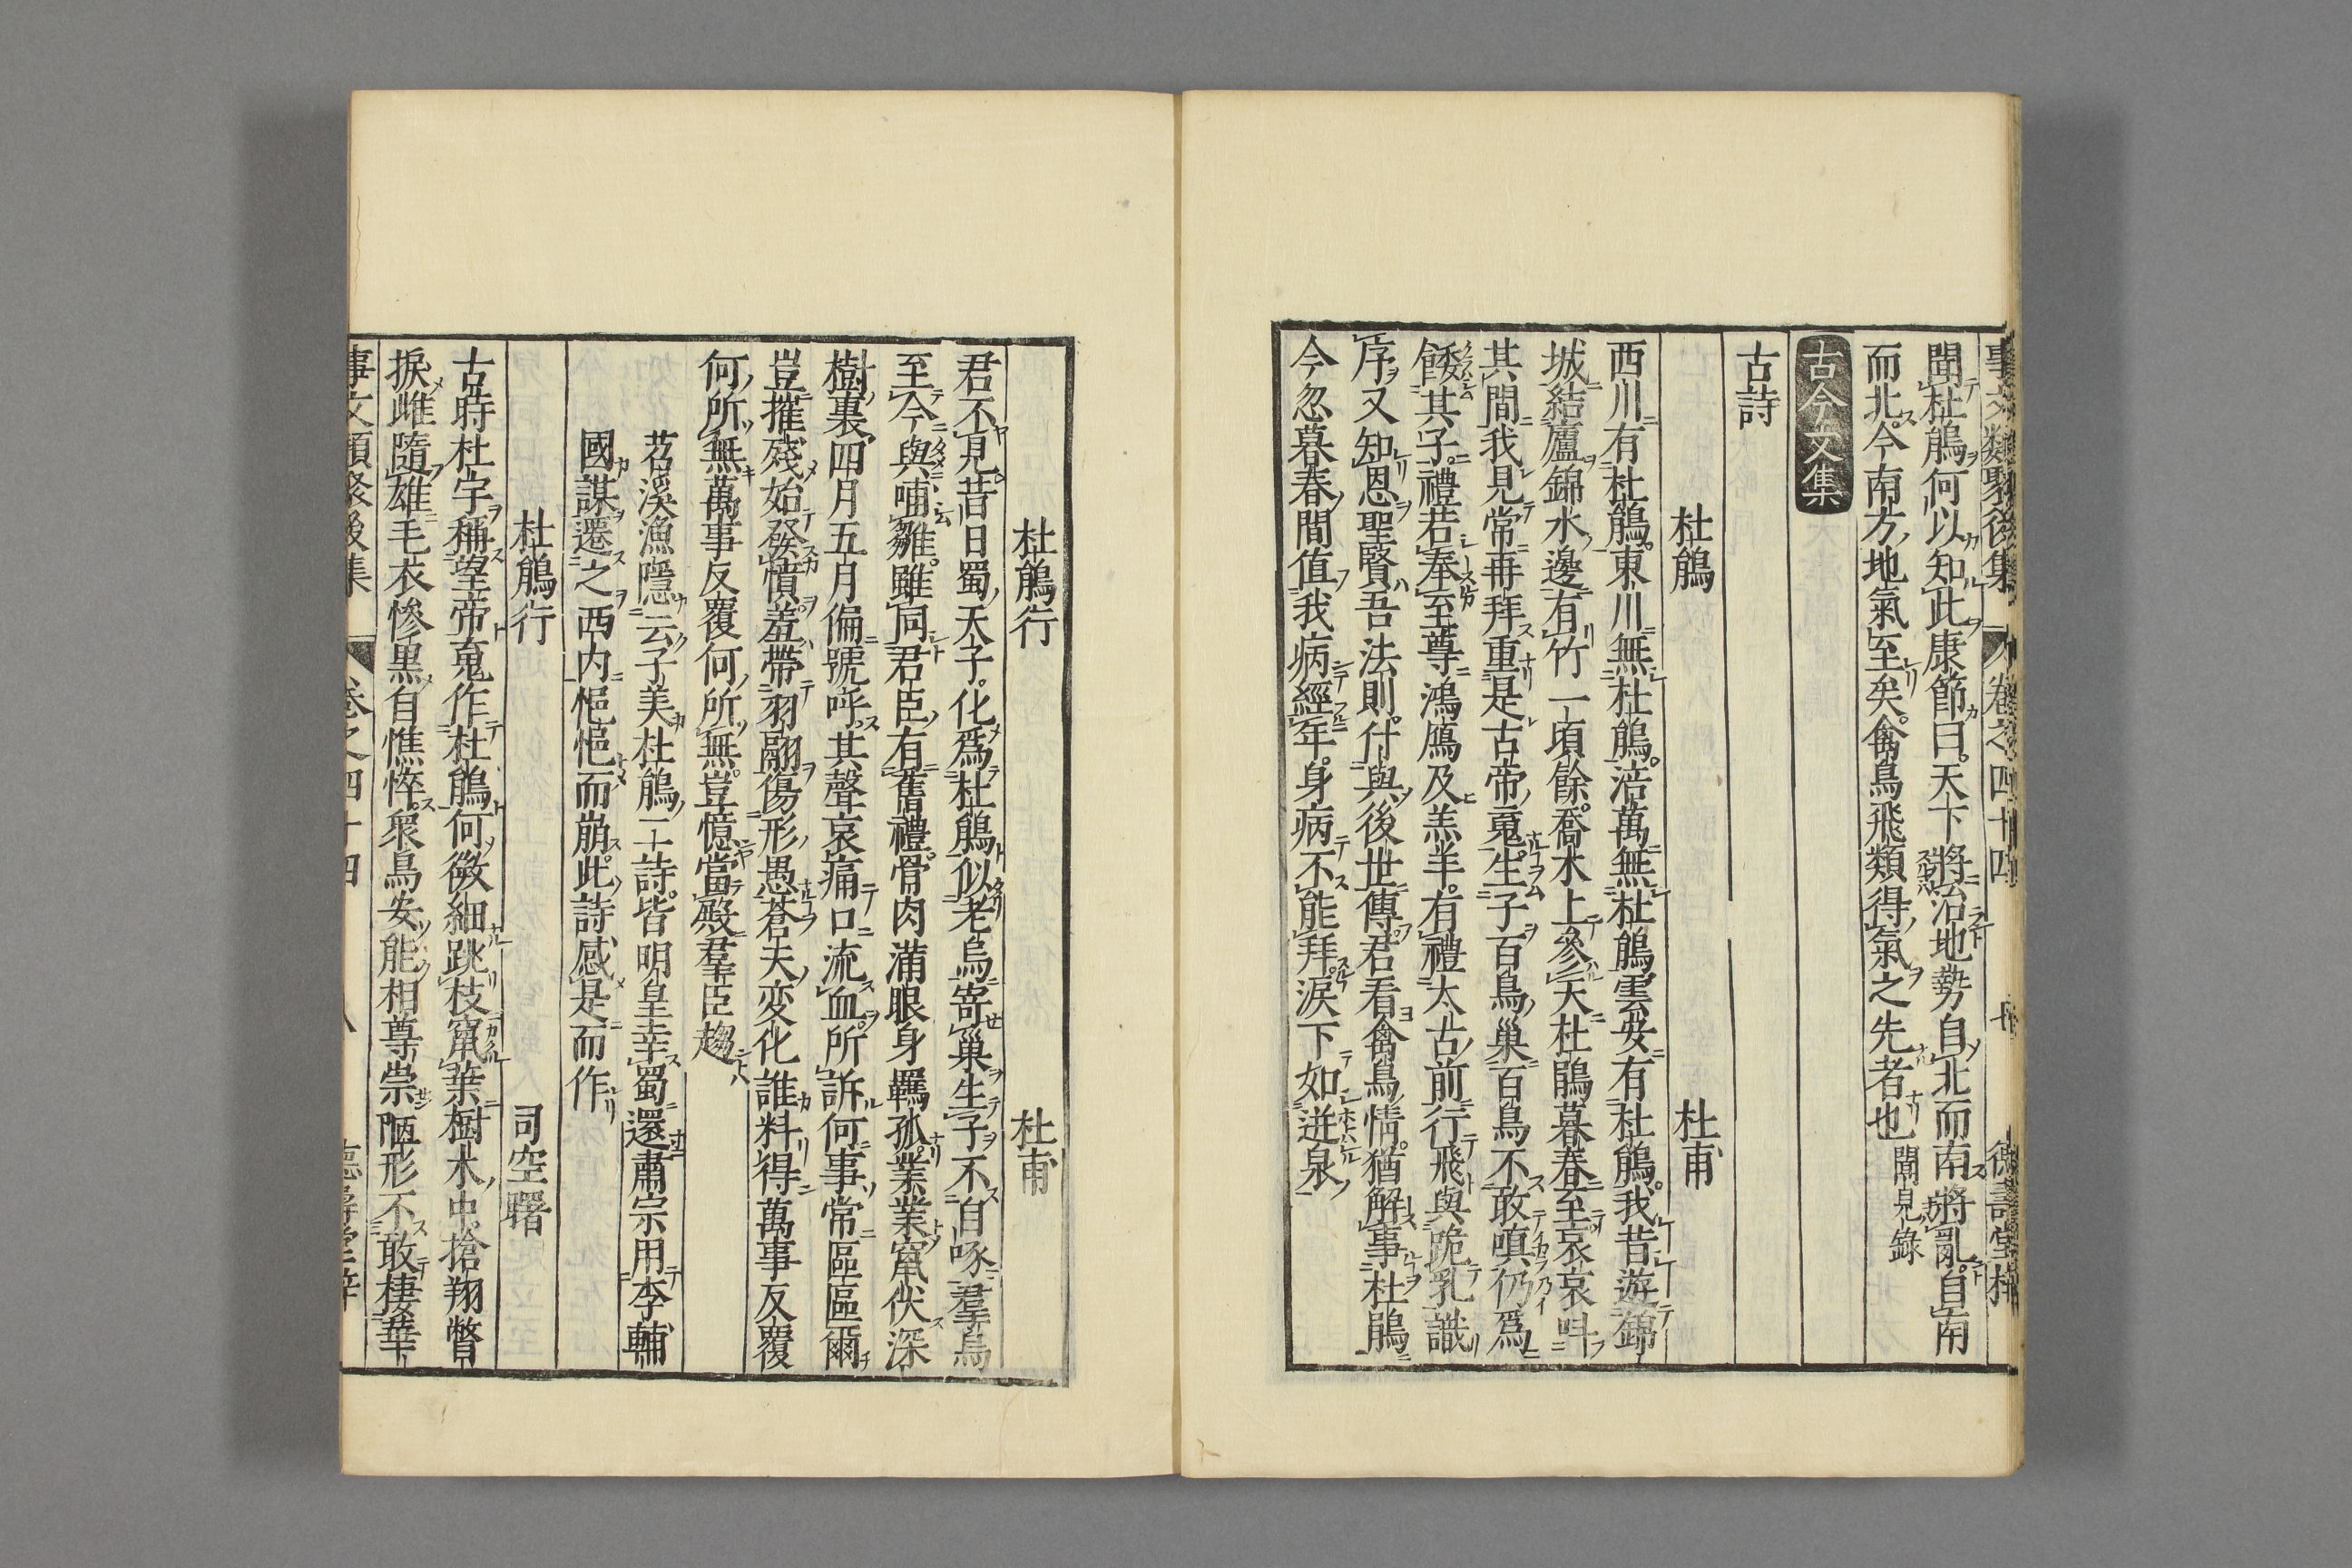 事文類聚後集 卷之四十四
聞杜鵑何以知此康節曰天下將治地勢自北而南將亂自南
而北今南方地氣至矣禽鳥飛類得氣之先者也 聞見錄
古今文集
古詩
杜鵑 杜甫
西川有杜鵑東川無杜鵑涪萬無杜鵑雲安有杜鵑我昔遊錦
城結廬錦水邊有竹一頃餘喬木上參天杜鵑暮春至哀哀叫
其間我見常再拜重是古帝䰟生子百鳥巢百鳥不敢嗔仍爲
餧其子禮若奉至尊鴻鴈及羔羊有禮太古前行飛與跪乳識
序又知恩聖賢吾法則付與後世傳君看禽鳥情猶解事杜鵑
今忽暮春間值我病經年身病不能拜淚下如迸泉
杜鵑行 杜甫
君不見昔日蜀天子化爲杜鵑似老烏寄巢生子不自啄羣鳥
至今與哺雛雖同君臣有舊禮骨肉滿眼身羈孤業業竄伏深
樹裏四月五月偏號呼其聲哀痛口流血所訴何事常區區爾
豈摧殘始發憤羞帶羽翮傷形愚蒼天変化誰料得萬事反覆
何所無萬事反覆何所無豈憶當殿羣臣趨
苕溪漁隱云子美杜鵑二詩皆明皇幸蜀還肅宗用李輔
國謀遷之西内悒悒而崩此詩感是而作
杜鵑行 司空曙
古時杜宇稱望帝䰟作杜鵑何微細跳枝竄葉樹木中搶翔瞥
捩雌隨雄毛衣慘黒自憔悴衆鳥安能相尊崇陋形不敢棲華
事文類聚後集 卷之四十四 八